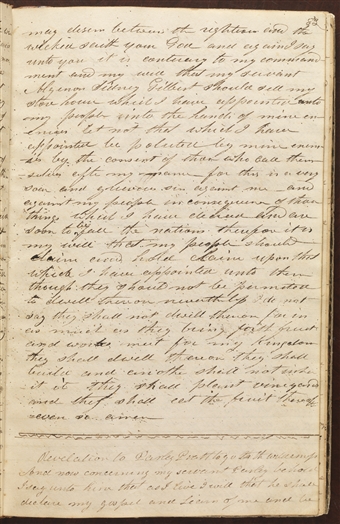 52
may desern between the righteous and the
wicked saith your God and again I say
unto you it is contrary to my command-
ment and my will that my servant
Algenon Sidney Gilbert should sell my
store house which I have appointed unto
my people unto the hands of mine en-
imies let not that which I have
appointed be poluted by mine enem-
ies by the consent of those who call them-
selves after my name for this is a very
soar and grievous sin against me and
against my people in consequence of those
things which I have decreed and are
soon to befall the nations therefore it is
my will that my people should
claim and hold claim upon that
which I have appointed unto them
though they should not be permitted
to dwell thereon nevertheless I do not
say they shall not dwell thereon for in
as much as they bring forth fruit
and works meet for my Kingdom
they shall dwell thereon they shall
build and another shall not inher
it it they shall plant vineyards
and they shall eat the fruit thereof
even so amen
Revelation to Parley Pratt to go to the wilderness
And now concerning my servant Parley behold
I say unto him that as I live I will that he shall
declare my gospel and learn of me and be